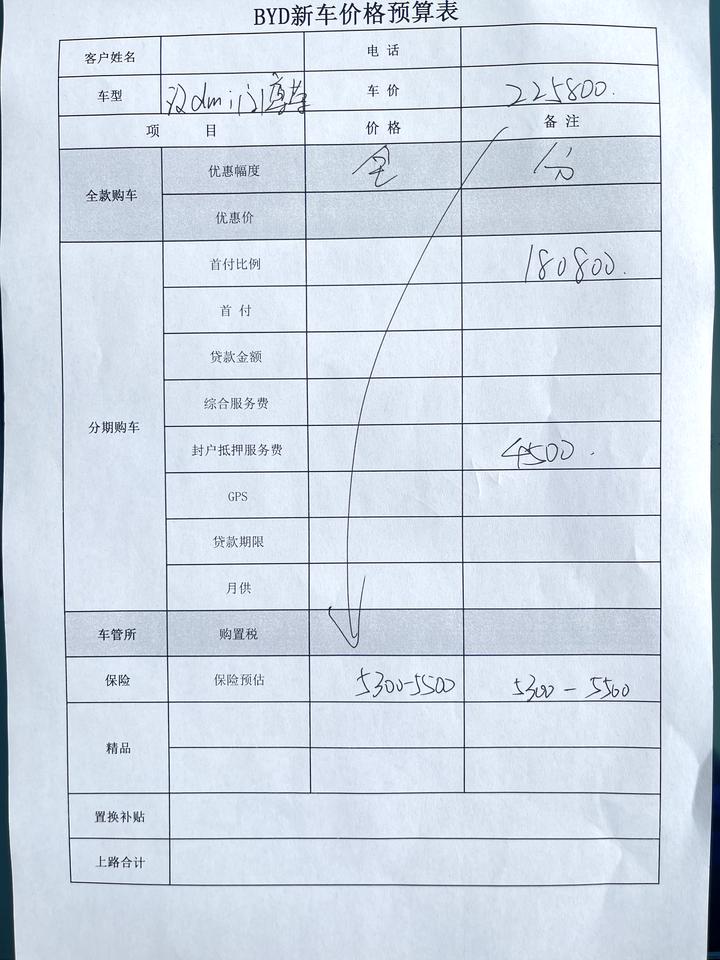 BYD新车价格预算表
客户姓名 电 话
车型 汉dmi 尊荣 车 价 225800.
项 目 价 格 备 注
全款购车 优惠幅度 全 分
优惠价
分期购车 首付比例 180800.
首 付
贷款金额
综合服务费
封户抵押服务费 4500.
GPS
贷款期限
月供
车管所 购置税
保险 保险预估 5300-5500 5300-5500
精品
置换补贴
上路合计